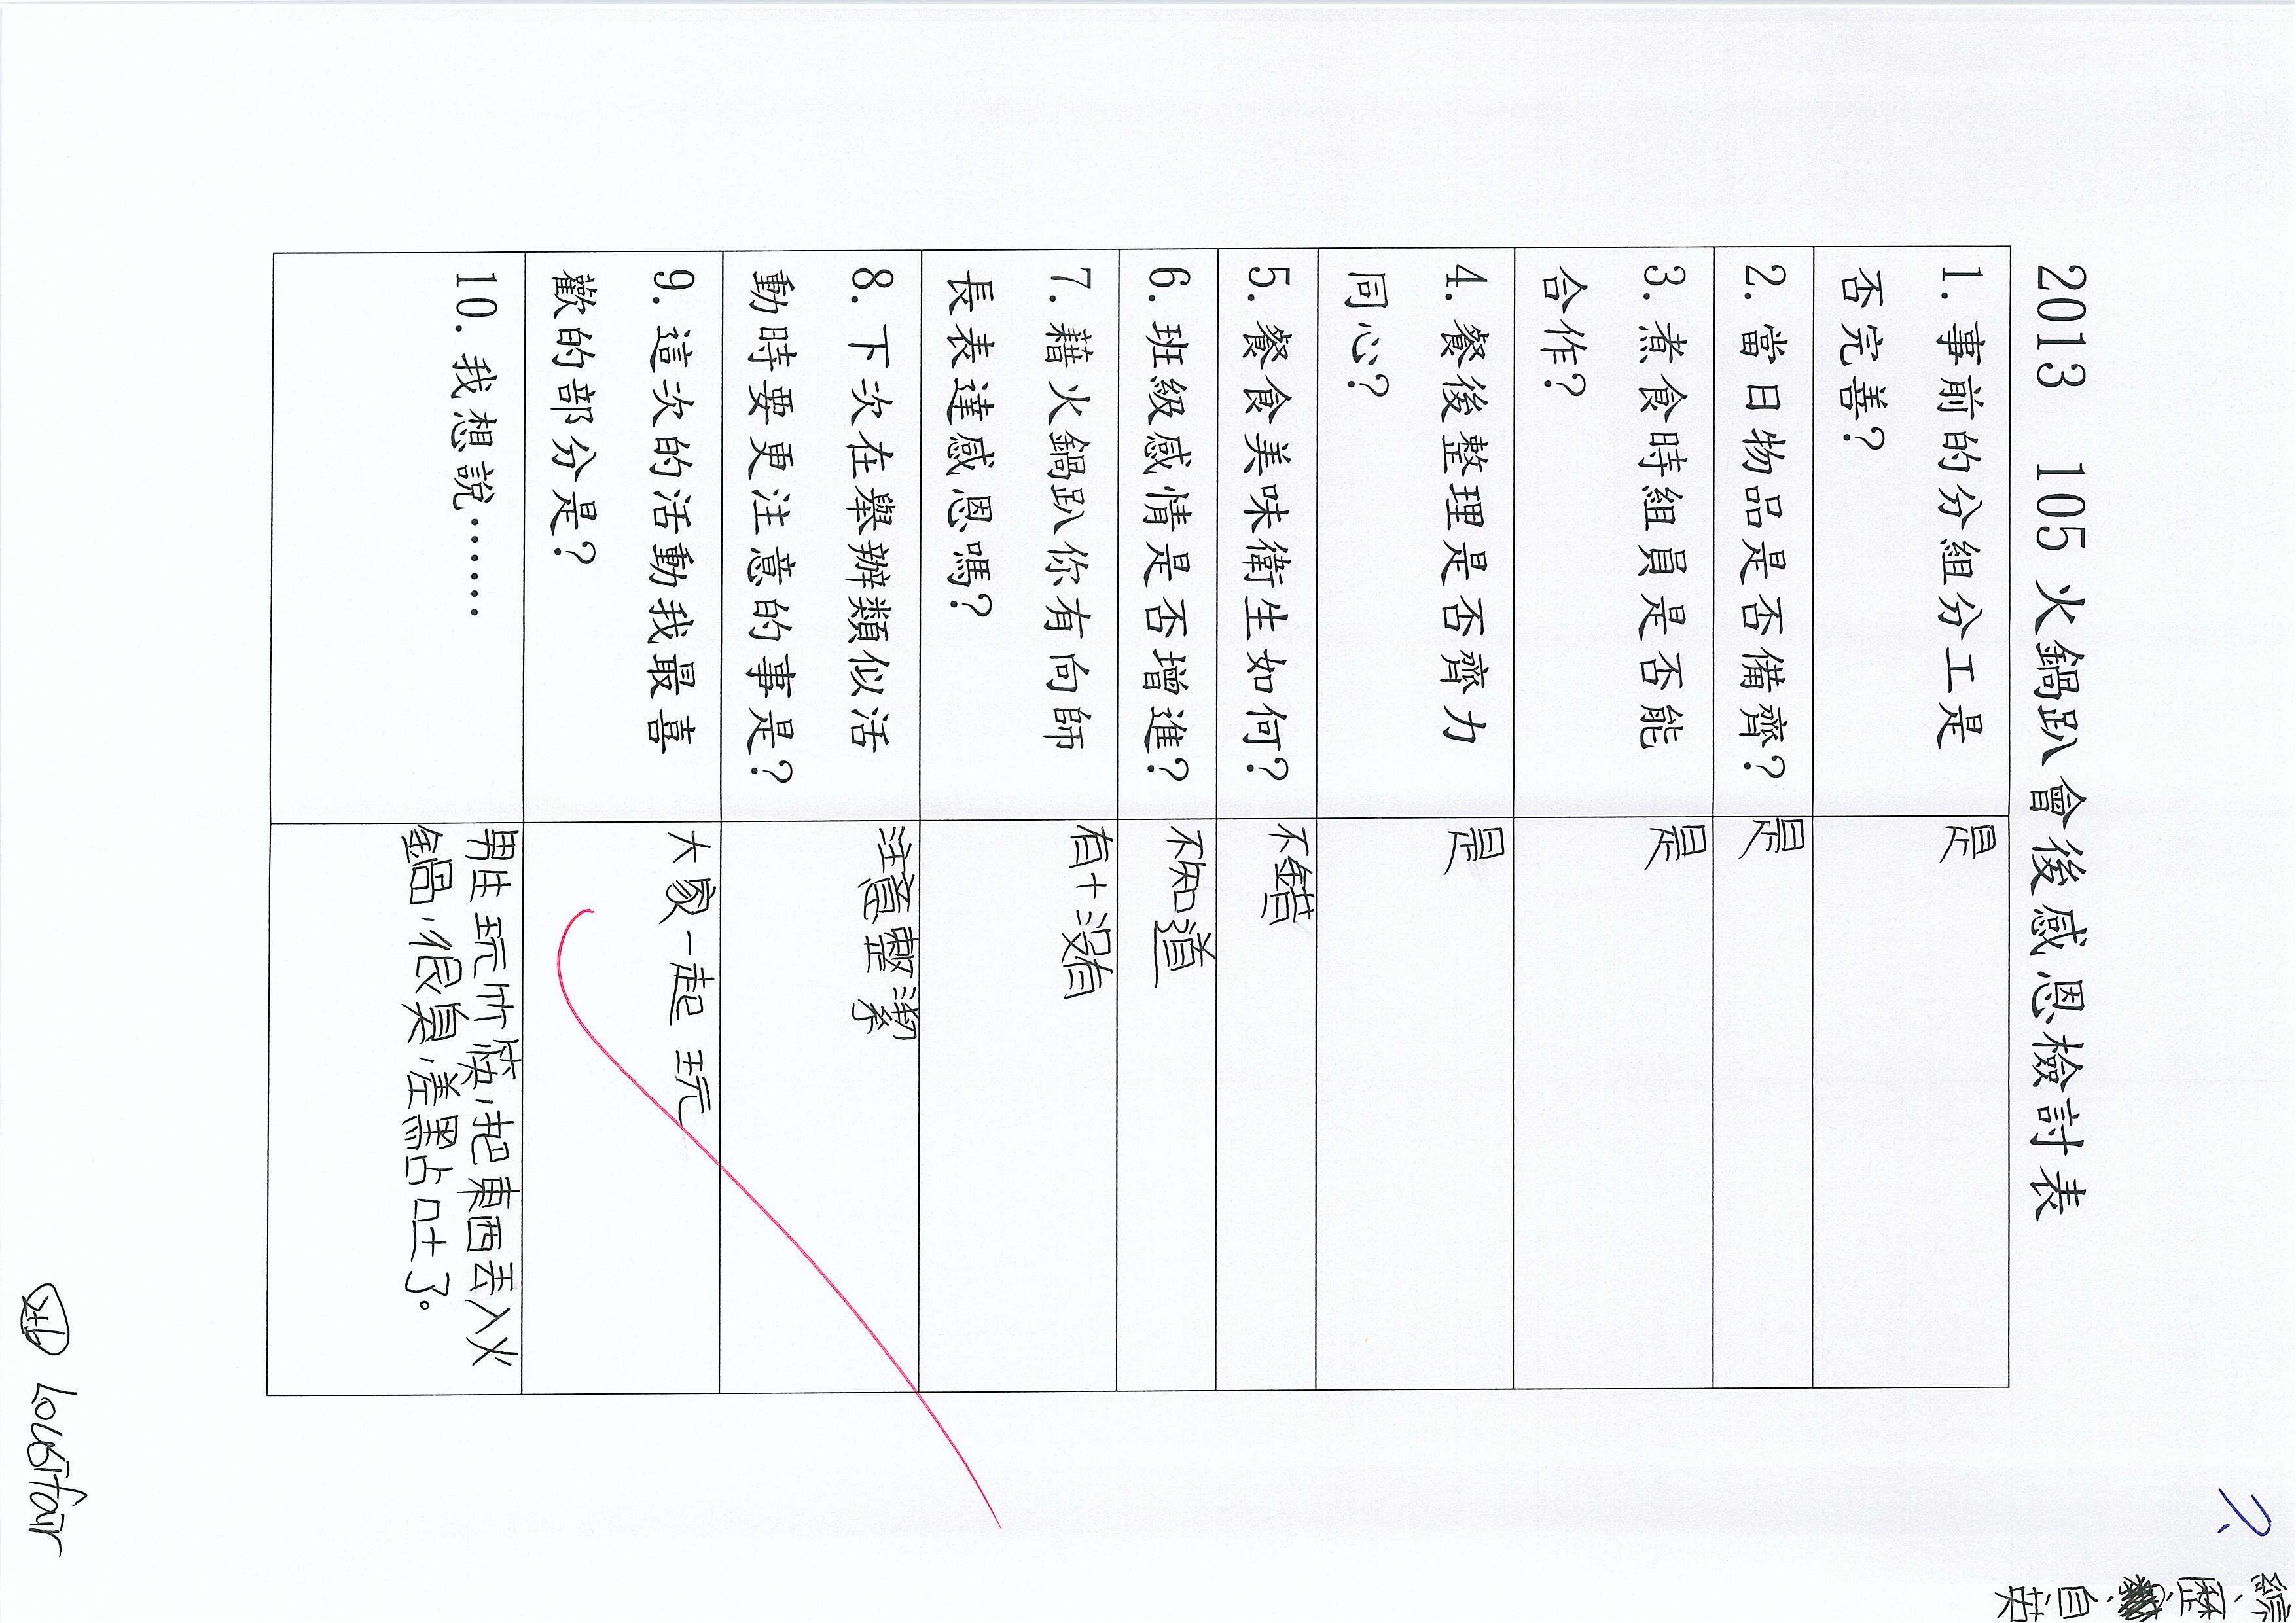 2013 105 火鍋趴會後感恩檢討表
1. 事前的分組分工是
否完善?
是
2. 當日物品是否備齊?
是
3. 煮食時組員是否能
合作?
是
4. 餐後整理是否齊力
同心?
是
5. 餐食美味衛生如何?
不錯
6. 班級感情是否增進?
不知道
7. 藉火鍋趴你有向師
長表達感恩嗎?
有+沒有
8. 下次在舉辦類似活
動時要更注意的事是?
注意整潔
9. 這次的活動我最喜
歡的部分是?
大家一起玩
10. 我想說.......
男生玩竹筷,把東西丟入火
鍋,很臭,差點吐了。